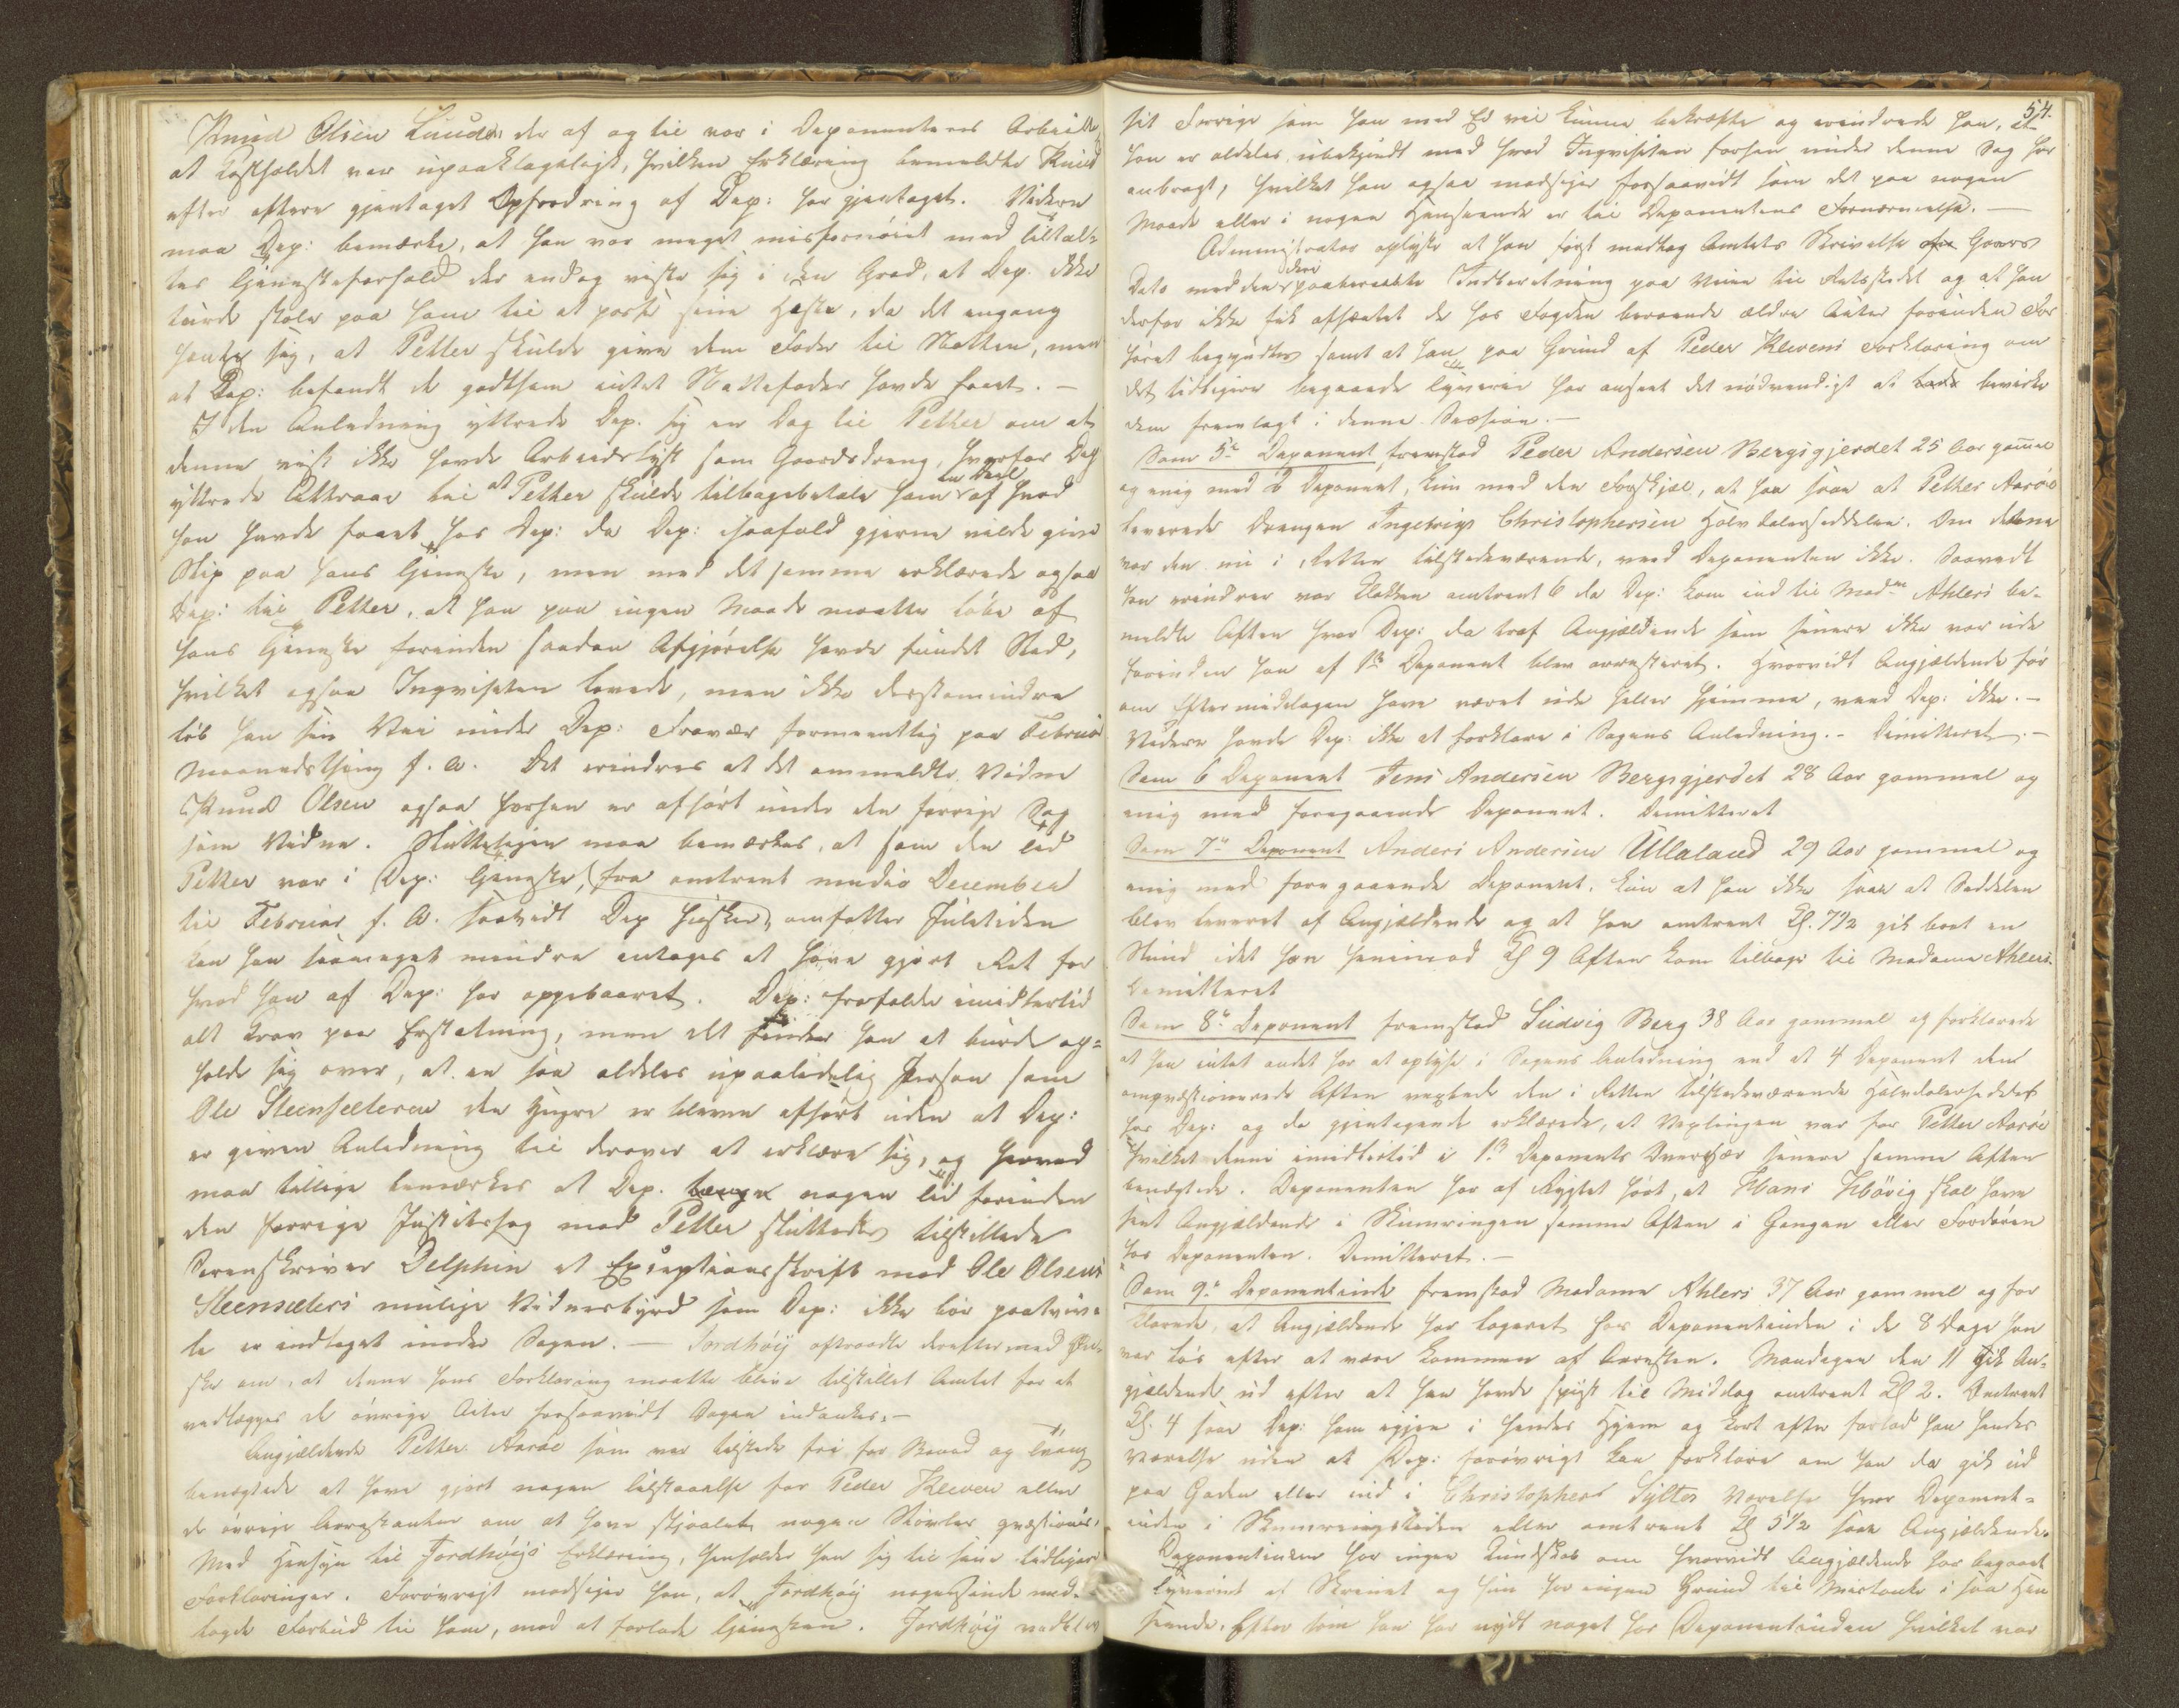 Knud Olsen Lunde: der af og til var i Deponentens Arbeide,
at Kostholdet var upaaklageligt, hvilken Erklæring bemeldte Knud
efter oftere gjentaget Opfordring af Dep: har gjentaget. Videre
maa Dep: bemærke, at han var meget misfornøiet med Tiltal-
tes Tjenesteforhold der endog viste sig i den Grad, at Dep. ikke
turde stole paa ham til at passe sine Heste, da det engang
hændte sig, at Petter skulde give dem Foder til Natten, men
at Dep: befandt de godtsom intet Nattefoder havde faaet. —
I den Anledning yttrede Dep. sig en Dag til Petter om at
denne vist ikke havde Arbeidslyst som Gaardsdreng, hvorfor Dep
yttrede Attraae til at Petter skulde tilbagebetale ham en Deel af hvad
han havde faaet hos Dep: da Dep: isaafald gjerne vilde give
Slip paa hans Tjeneste, men med det samme erklærede ogsaa
Dep: til Petter, at han paa ingen Maade maatte løbe af
hans Tjeneste forinden saadan Afgjørelse havde fundet Sted,
hvilket ogsaa Inqvisiten lovede, men ikke destomindre
løb han sin Vei under Dep: Fravær formeentlig paa Februar
Maanedsthing f. A. Det erindres at det ommeldte Vidne
Knud Olsen ogsaa forhen er afhørt under den forrige Sag
som Vidne. Slutteligen maa bemærkes, at som den Tid
Petter var i Dep: Tjeneste, (fra omtrent medio December
til Februar f. A. saavidt Dep husker) omfatter Juletiden
kan han saameget mindre antages at have gjort Ret for
hvad han af Dep: har oppebaaret. Dep: frafaldt imidlertid
alt Krav paa Erstatning, men alt finder han at burde op-
holde sig over, at en saa aldeles upaalidelig Person som
Ole Steensæteren den Yngre er bleven afhørt uden at Dep:
er given Anledning til derover at erklære sig, og herved
maa tillige bemærkes at Dep. nogen Tid forinden
den forrige Justitssag mod Petter sluttedes tilstillede
Sorenskriver Delphin et Exceptionsskrift mod Ole Olsens
Steensæters mulige Vidnesbyrd som Dep: ikke bør paatvivle
er indtaget under Sagen. — Jordhøy aftraadte derefter med Øn-
ske om, at denne hans Forklaring maatte blive tilstillet Amtet for at
vedlægges de øvrige Acter forsaavidt Sagen indankes. —
Angjældende Petter Aarøe som var tilstede fri for Baand og Tvang
benægtede at have gjort nogen Tilstaaelse for Peder Kleven eller
de øvrige Arrestanter om at have stjaalet nogen Støvler qvæstionis.
Med Hensyn til Jordhøys Erklæring, henholder han sig til sine tidligere
Forklaringer. Forøvrigt modsiger han, at Jordhøy nogensinde ned-
lagde Forbud til ham, mod at forlade Tjenesten. Jordhøy vedblev
54.
sit Forrige som han med Ed vil kunne bekræfte og erindrede han, at
han er aldeles ubekjendt med hvad Inqvisiten forhen under denne Sag har
anbragt, hvilket han ogsaa modsiger forsaavidt som det paa nogen
Maade eller i nogen Henseende er til Deponentens Fornærmelse. —
Administrator oplyste at han først modtog Amtets Skrivelse Gaars
Dato med den deri paaberaabte Indberetning paa Veien til Retsstedet og at han
derfor ikke fik afhentet de hos Fogden beroende ældre Acter forinden For
høret begyndtes samt at han paa Grund af Peder Klevens Forklaring om
det tidligere begaaede Tyverie har anseet det nødvendigt at bevirke
dem fremlagt i denne Session. —
Som 5te Deponent fremstod Peder Andersen Bergsgjerdet 25 Aar gammel
og enig med 2 Deponent, kun med den Forskjel, at han saae at Petter Aarøe
leverede Drengen Ingebrigt Christophersen Halvdalerseddelen. Om denne
var den nu i Retten tilstedeværende, veed Deponenten ikke. Saavidt
han erindrer var Klokken omtrent 6 da Dep: kom ind til Madme Ahlers be-
meldte Aften hvor Dep: da traf Angjældende som senere ikke var ude
forinden han af 1ste Deponent blev arresteret. Hvorvidt Angjældende før
om Eftermiddagen have været ude heller hjemme, veed Dep: ikke. —
Videre havde Dep: ikke at forklare i Sagens Anledning. — Dimitteret. —
Som 6 Deponent Jens Andersen Bergsgjerdet 28 Aar gammel og
enig med foregaaende Deponent. Dimitteret
Som 7de Deponent Anders Andersen Ullaland 29 Aar gammel og
enig med foregaaende Deponent, kun at han ikke saae at Seddelen
blev leveret af Angjældende og at han omtrent Kl. 7 1/2 gik bort en
Stund idet han henimod Kl 9 Aften kom tilbage til Madame Ahlers.
Dimitteret
Som 8de Deponent fremstod Ludvig Berg 38 Aar gammel og forklarede
at han intet andet har at oplyse i Sagens Anledning end at 4 Deponent den
omqvæstionerede Aften vexlede den i Retten tilstedeværende Halvdalerseddel
hos Dep: og da gjentagende erklærede, at Vexlingen var for Petter Aarøe
hvilket denne imidlertid i 1ste Deponents Overvær senere samme Aften
benægtede. Deponenten har af Rygtet hørt, at Hans Høvig skal have
seet Angjældende i Skumringen samme Aften i Gangen eller Fordøren
hos Deponenten. Dimitteret. —
Som 9de Deponentinde fremstod Madame Ahlers 37 Aar gammel og for
klarede, at Angjældende har logeret hos Deponentinden i de 8 Dage han
var løs efter at være kommen af Arresten. Mandagen den 11 gik An-
gjældende ud efter at han havde spiist til Middag omtrent Kl 2. Omtrent
Kl. 4 saae Dep: ham igjen i hendes Hjem og kort efter forlod han hendes
Værelse uden at Dep: forøvrigt kan forklare om han da gik ud
paa Gaden eller ind i Christophers Syltes Værelse hvor Deponent-
inden i Skumringstiden eller omtrent Kl 5 1/2 saae Angjældende.
Deponentinden har ingen Kundskab om hvorvidt Angjældende har begaaet
Tyveriet af Skrinet og hun har ingen Grund til Mistanke i saa Hen
seende. Efter som han har nydt noget hos Deponentinden hvilket var